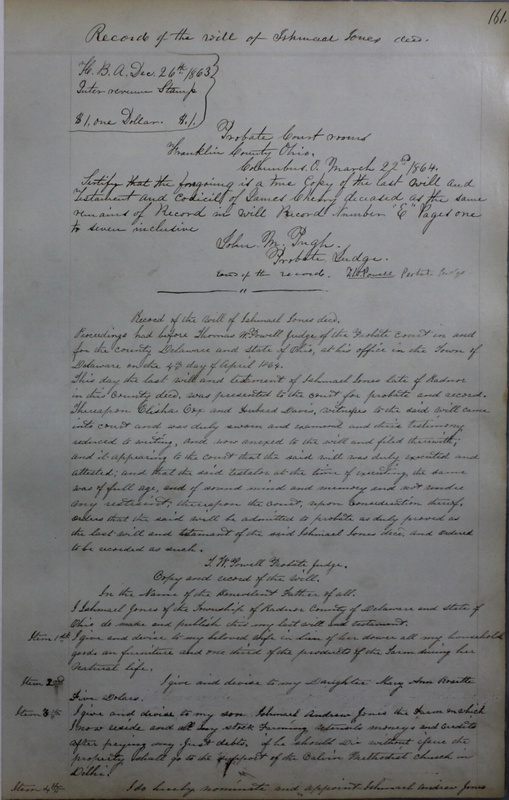 161.
Record of the will of Ishmael Jones decd.
H. B. A. Dec. 26th 1863
Inter revenue Stamp
$1, one Dollar. $1.
Probate Court rooms
Franklin County Ohio.
Columbus. O. March 22nd 1864.
Certify that the foregoing is a true Copy of the last will and
Testament and Codicill of James Cherry deceased as the same
remains of Record in Will Record Number "E" Pages one
to seven inclusive
John. M. Pugh.
Probate Judge.
of the record. T.W.Powell Probate Judge
"
Record of the Will of Ishmael Jones decd.
Proceedings had before Thomas W. Powell Judge of the Probate Court in and
for the County Delaware and State of Ohio, at his office in the Town of
Delaware on the 4th day of April 1864.
This day the last will and testement of Ishmael Jones late of Radnor
in this County decd, was presented to the court for probate and record.
Thereupon Elisha Cox and Hubard Davis, witnesses to the said will came
into court and was duly sworn and examined and their testimony
reduced to writing, and now anexed to the will and filed therewith;
and it appearing to the court that the said will was duly executed and
attested; and that the said testator at the time of executing the same
was of full age, and of sound mind and memory and not under
any restraint; thereupon the court, upon consideration thereof,
orders that the said will be admitted to probate as duly proved as
the last will and testement of the said Ishmael Jones decd and ordered
to be recorded as such.
T. W. Powell Probate Judge.
Copy and record of the Will.
In the Name of the Benevolent Father of all.
I Ishmael Jones of the Township of Radnor County of Delaware and State of
Ohio do make and publish this my last will and testement.
Item 1st I give and devise to my beloved wife in lieu of her dower all my household
goods an furniture and one third of the products of the Farm during her
Natural life.
Item 2nd I give and devise to my Daughter Mary Ann
Five Dolars.
Item 3rd I give and devise to my son Ishmael Andrew Jones the Farm on which
I now reside and all my stock Farming utensils moneys and credits
after paying my Just debts, if he should die without issue the
property shall go to the support of the Calvin Methodist church in
Delhi.
Item 4th I do hereby nominate and appoint Ishmael Andrew Jones